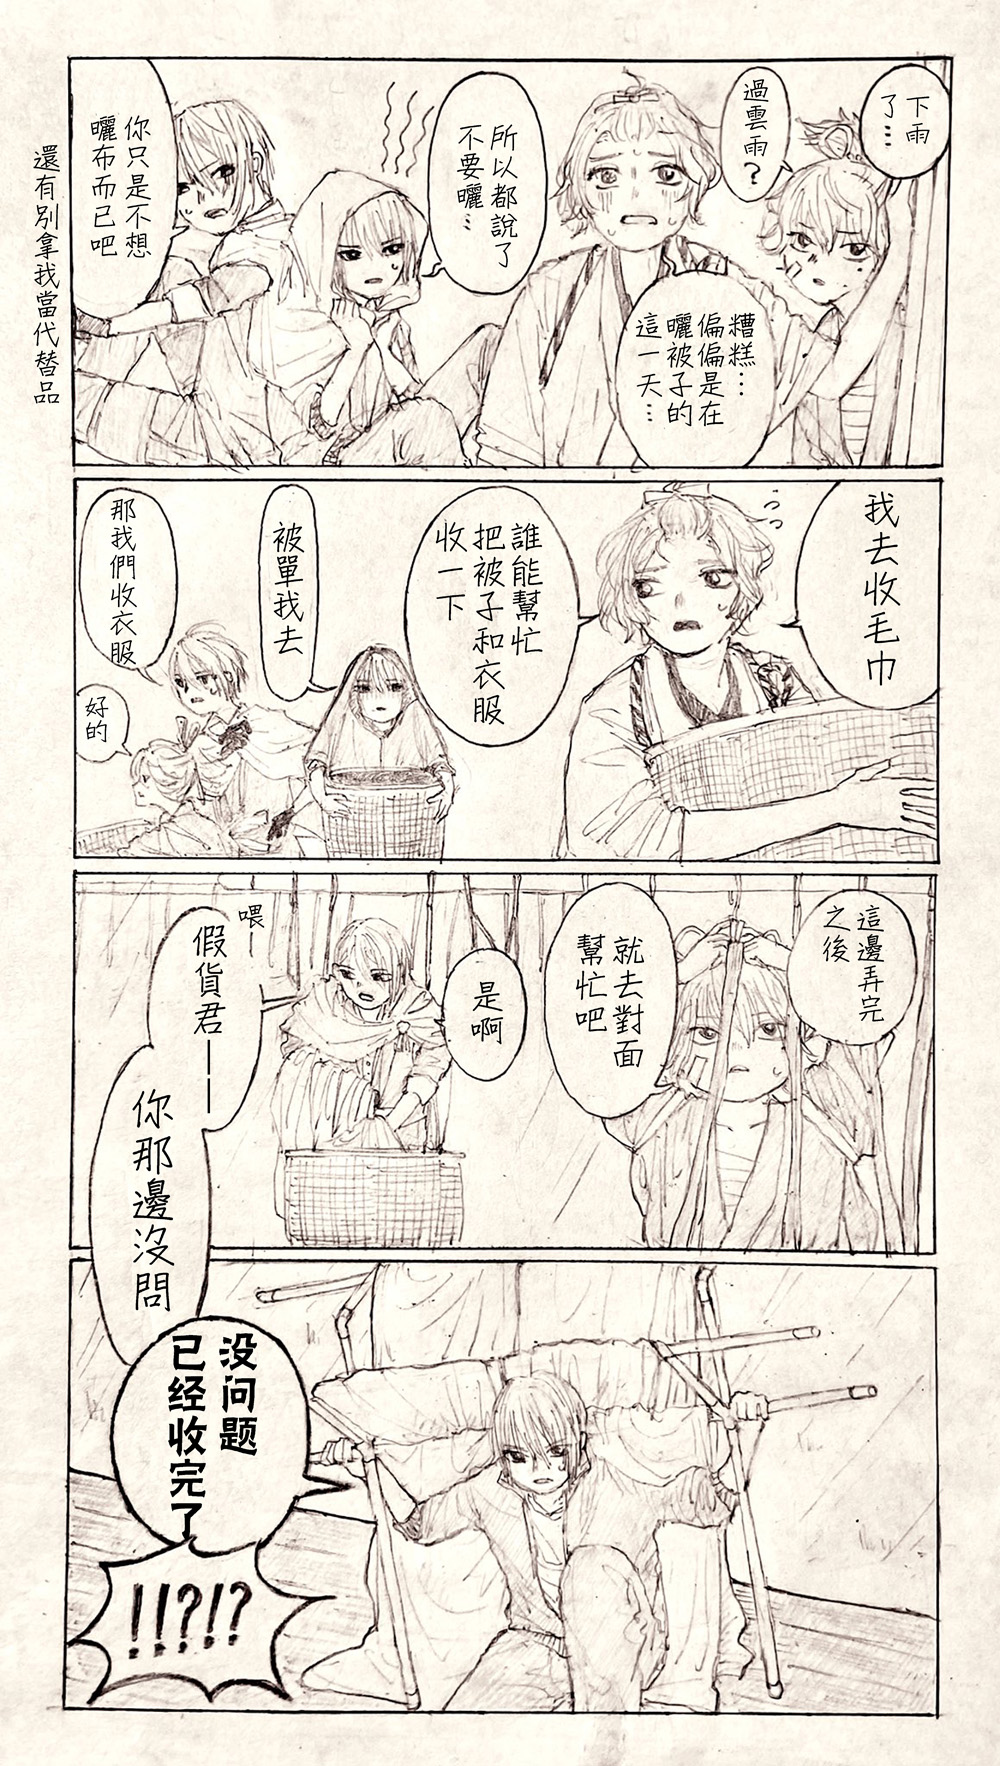 下雨
了…
過雲雨？
糟糕…
偏偏是在
曬被子的
這一天…
所以都說了
不要曬…
你只是不想
曬布而已吧
還有別拿我當代替品
我去收毛巾
誰能幫忙
把被子和衣服
收一下
被單我去
那我們收衣服
好的
這邊弄完
之後
就去對面
幫忙吧
是啊
喂—
假貨君———
你那邊沒問
没问题
已经收完了
!!?!?